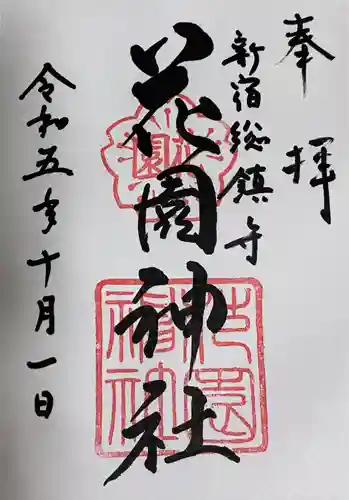 奉拝
新宿総鎮守
花園神社
令和五年十月一日
花園
花園神社